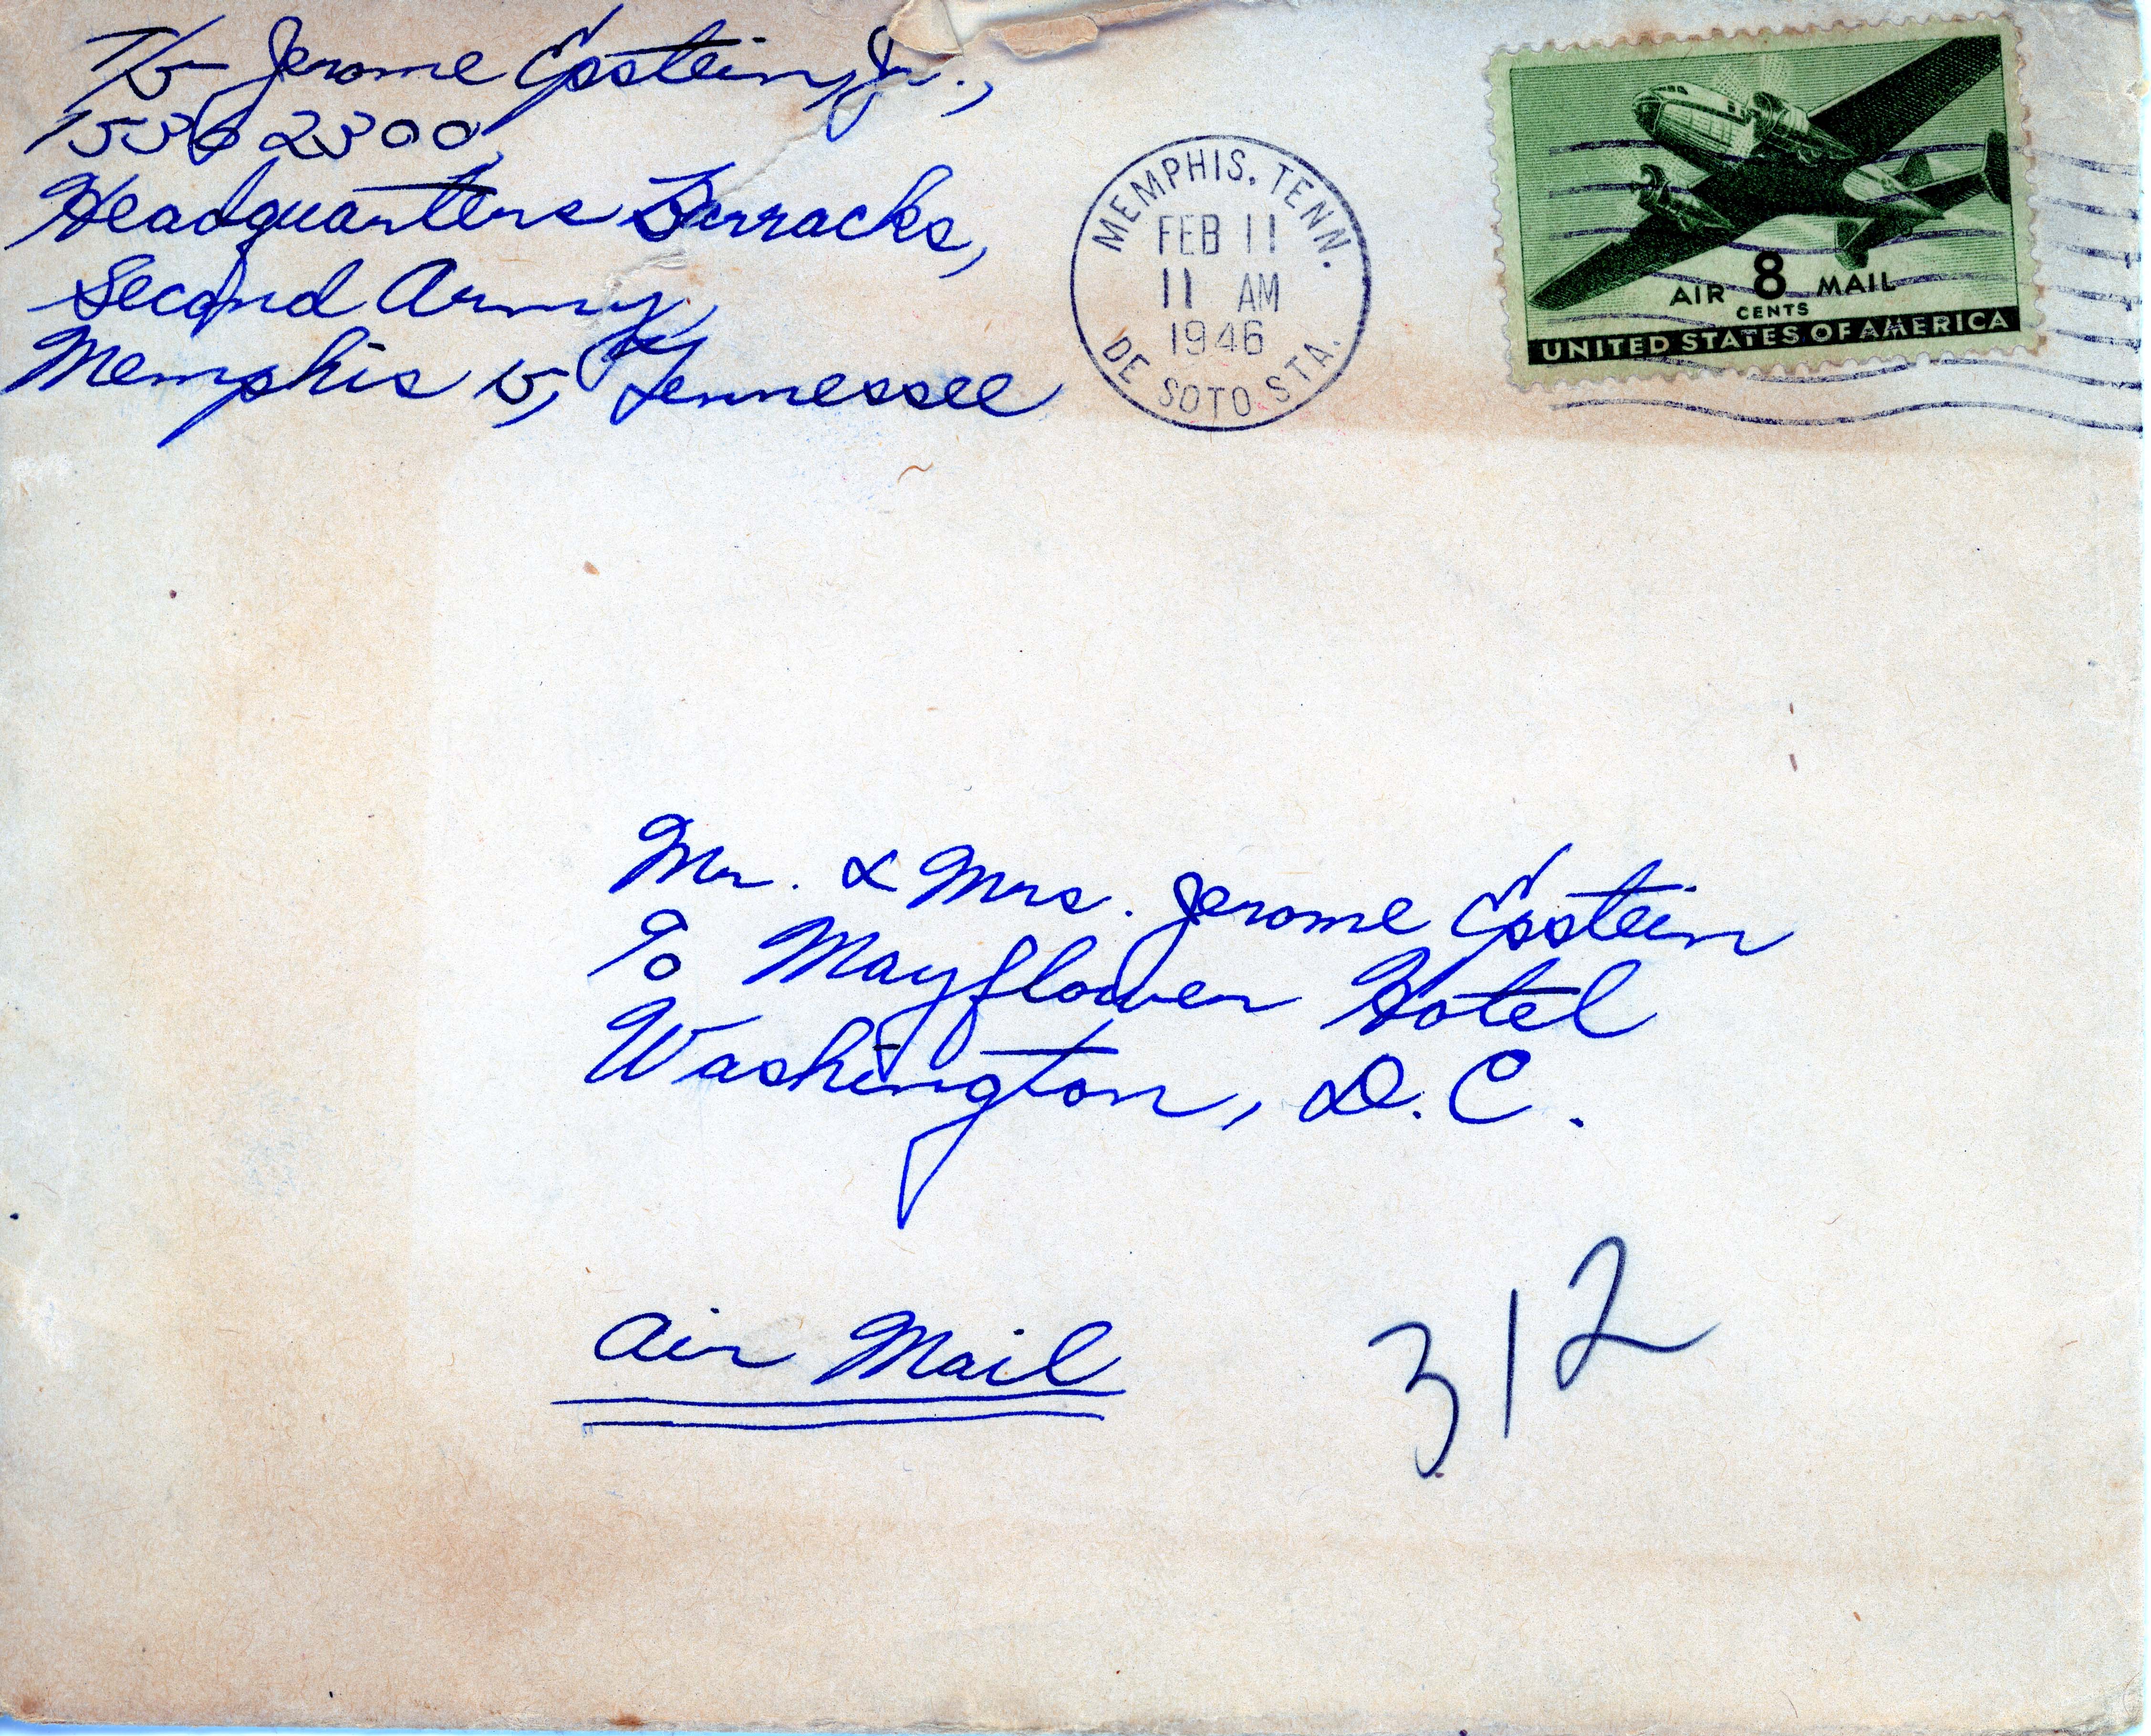 T/5 Jerome Epstein, Jr.,
15362300
Headquarters Barracks,
Second Army,
Memphis 5, Tennessee
MEMPHIS, TENN.
FEB 11
11 AM
1946
DE SOTO STA.
AIR 8 MAIL
CENTS
UNITED STATES OF AMERICA
Mr. & Mrs. Jerome Epstein
% Mayflower Hotel
Washington, D.C.
Air Mail
312